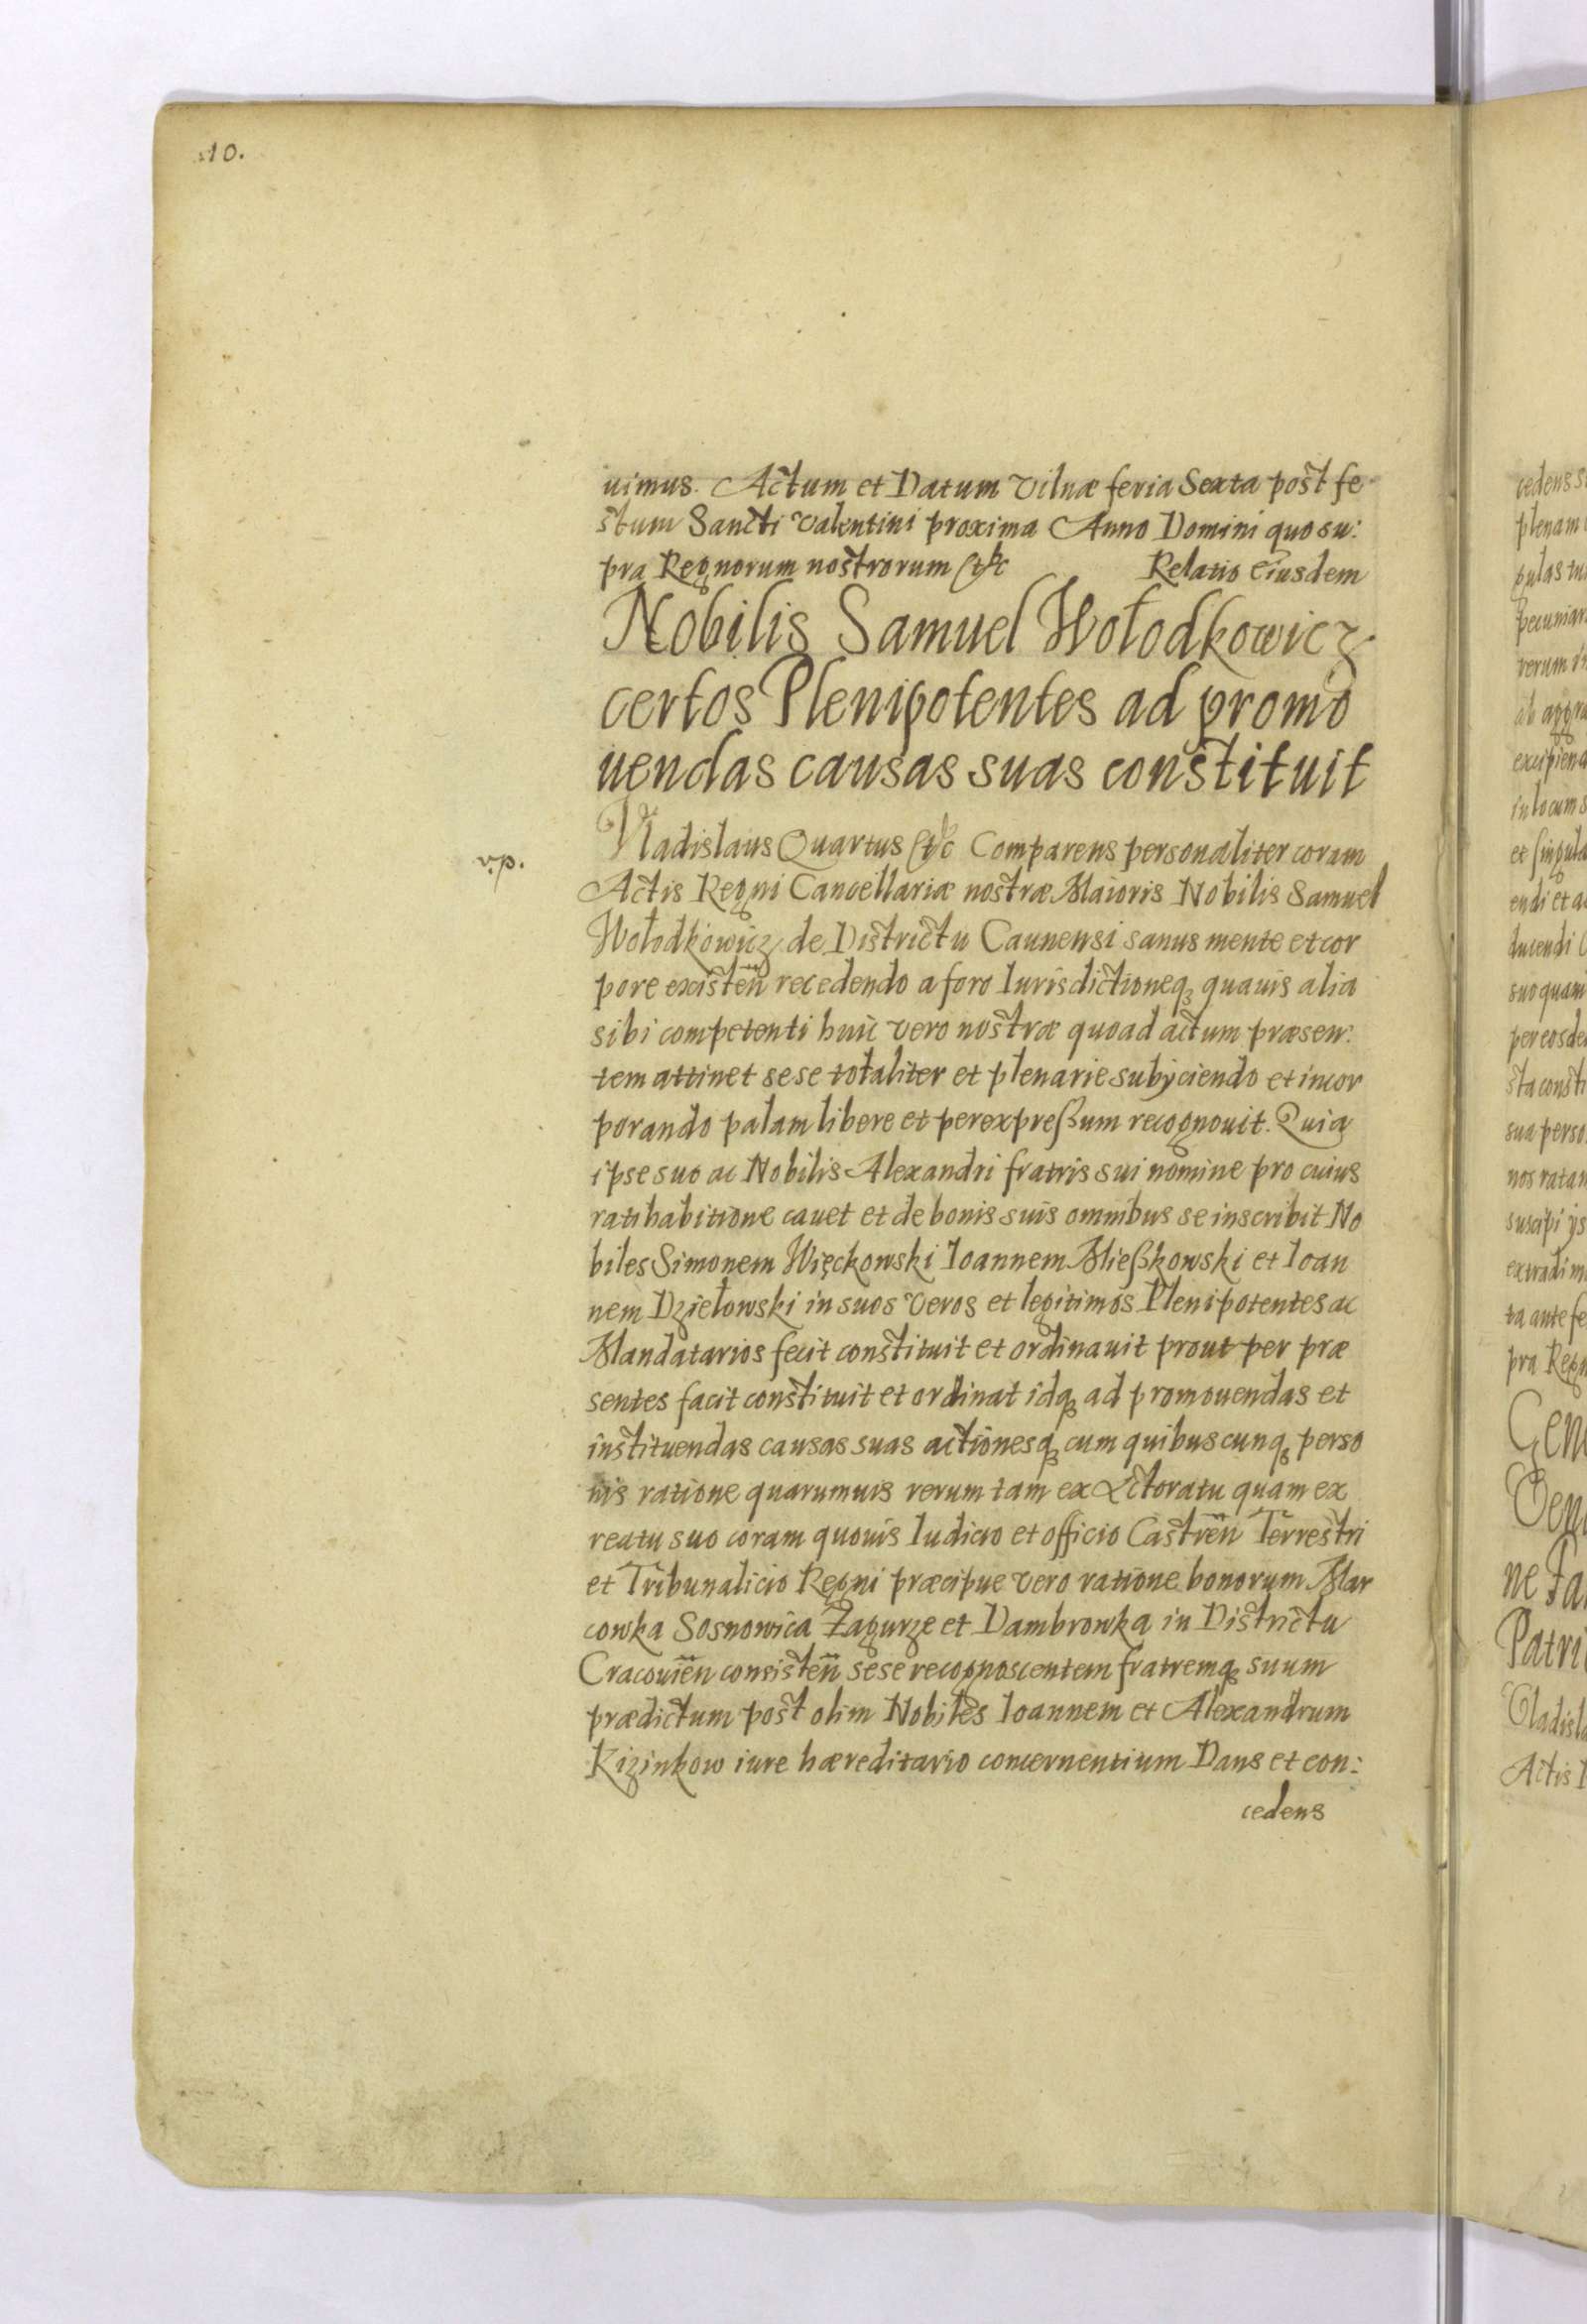 10.
uimus. Actum et Datum Vilnæ feria Sexta post fe
stum Sancti Valentini proxima Anno Domini quo su:
pra Regnorum nostrorum etc Relatio Eiusdem
Nobilis Samuel Wołodkowicz
certos Plenipotentes ad promo
uendas causas suas constituit
Vladislaus Quartus etc Comparens personaliter coram
v.p.
Actis Regni Cancellariæ nostræ Maioris Nobilis Samuel
Wołodkowicz de Districtu Caunensi sanus mente et cor
pore existen̄ recedendo a foro Iurisdictioneq; quauis alia
sibi competenti huic vero nostræ quoad actum præsen:
tem attinet sese totaliter et plenarie subijciendo et incor
porando palam libere et per expreßum recognouit. Quia
ipse suo ac Nobilis Alexandri fratris sui nomine pro cuius
ratihabitione cauet et de bonis suis omnibus se inscribit No
biles Simonem Więckowski Ioannem Mießkowski et Ioan
nem Dziełowski in suos veros et legitimos Plenipotentes ac
Mandatarios fecit constituit et ordinauit prout per præ
sentes facit constituit et ordinat idq; ad promouendas et
instituendas causas suas actionesq; cum quibuscunq; perso
nis ratione quarumuis rerum tam ex Actoratu quam ex
reatu suo coram quouis Iudicio et officio Castren̄ Terrestri
et Tribunalicio Regni præcipue vero ratione bonorum Mar
cowka Sosnowica Zagurze et Dambrowka in Districtu
Cracouien̄ consisten̄ sese recognoscentem fratremq; suum
prædictum post olim Nobiles Ioannem et Alexandrum
Kizinkow iure hæreditario concernentium Dans et con:
cedens